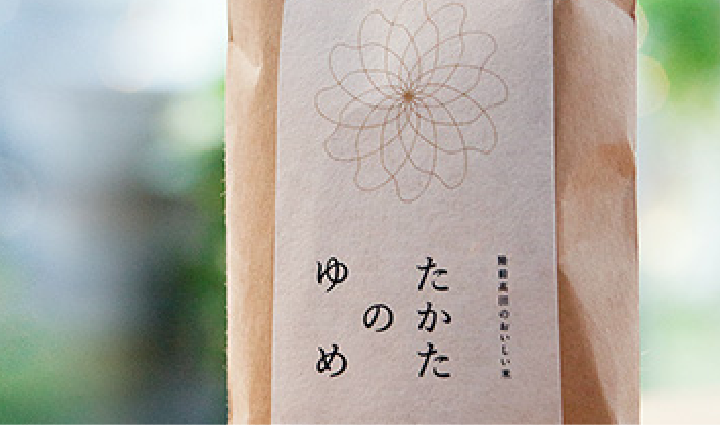 陸前高田のおいしい米
たかた
の
ゆめ